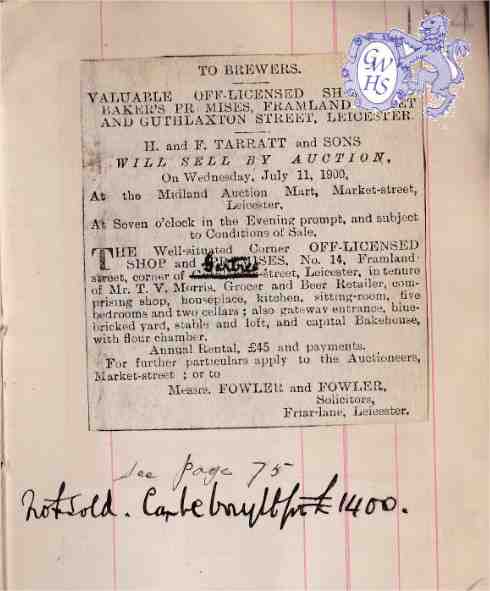 TO BREWERS.
VALUABLE OFF-LICENSED
BAKER'S PR MISES, FRAMLAND
AND GUTHLAXTON STREET, LEICESTER
H. and F. TARRATT and SONS
WILL SELL BY AUCTION,
On Wednesday, July 11, 1900,
At the Midland Auction Mart, Market-street,
Leicester,
At Seven o'clock in the Evening prompt, and subject
to Conditions of Sale,
THE Well-situated Corner OFF-LICENSED
SHOP and PREMISES, No. 14, Framland-
street, corner of Gartree street, Leicester, in tenure
of Mr. T. V. Morris, Grocer and Beer Retailer, com-
prising shop, houseplace, kitchen, sitting-room, five
bedrooms and two cellars; also gateway entrance, blue-
bricked yard, stable and loft, and capital Bakehouse,
with flour chamber.
Annual Rental, £45 and payments.
For further particulars apply to the Auctioneers,
Market-street; or to
Messrs. FOWLER and FOWLER,
Solicitors,
Friar-lane, Leicester.
see page 75
Not sold. Can be bought for £1400.
GWHS